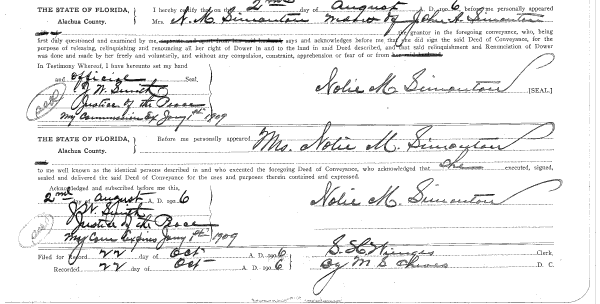 THE STATE OF FLORIDA, I hereby certify that on the 2nd day of August A. D. 190 6, before me personally appeared
Alachua County. Mrs. N. M. Simonton widow of John A. Simonton
the grantor in the foregoing conveyance, who, being
first duly questioned and examined by me, says and acknowledges before me that she did sign the said Deed of Conveyance, for the
purpose of releasing, relinquishing and renouncing all her right of Dower in and to the land in said Deed described, and that said relinquishment and Renunciation of Dower
was done and made by her freely and voluntarily, and without any compulsion, constraint, apprehension or fear of or from
In Testimony Whereof, I have hereunto set my hand
and official Seal.
J. W. Smith Nolie M. Simonton [SEAL]
Seal Justice of the Peace
My Commission Ex Jany 1st 1909
THE STATE OF FLORIDA, Before me personally appeared Mrs. Nolie M. Simonton
Alachua County.
to me well known as the identical persons described in and who executed the foregoing Deed of Conveyance, who acknowledged that She executed, signed,
sealed and delivered the said Deed of Conveyance for the uses and purposes therein contained and expressed.
Acknowledged and subscribed before me this,
2nd day of August A. D. 190 6 Nolie M. Simonton
J. W. Smith
Seal Justice of the Peace
My Com Expires Jany 1st 1909
Filed for Record 22 day of Oct A. D. 190 6 Clerk,
Recorded 22 day of Oct A. D. 190 6 By M. S. D. C.